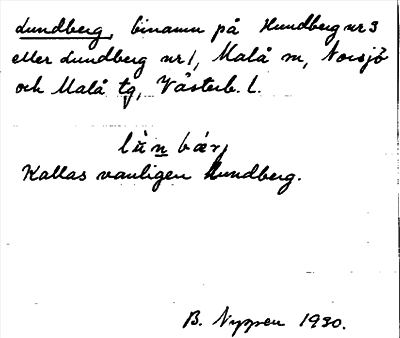 Lundberg, binamn på Hundberg nr 3
eller Lundberg nr 1, Malå sn, Norsjö
och Malå tg, Västerb. l.
lùn bǽrj
Kallas vanligen Hundberg.
B. Nyppen 1930.